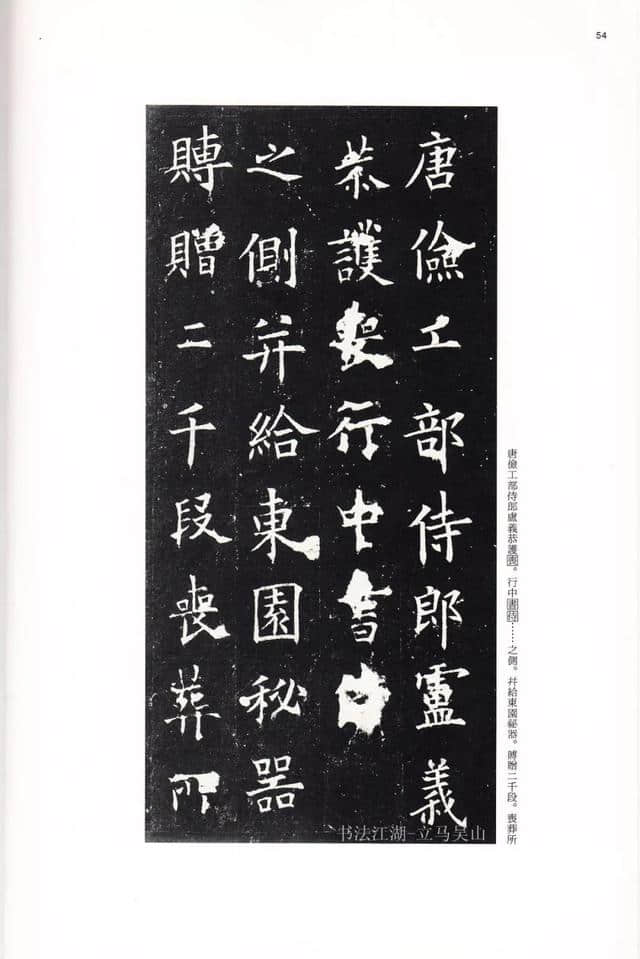 54
唐儉工部侍郎盧義
恭護喪行中書
之側并給東園秘器
賻贈二千段喪葬所
唐儉工部侍郎盧義恭護喪。行中書侍……之側。并給東園祕器。賻贈二千段。喪葬所
书法江湖-立马吴山